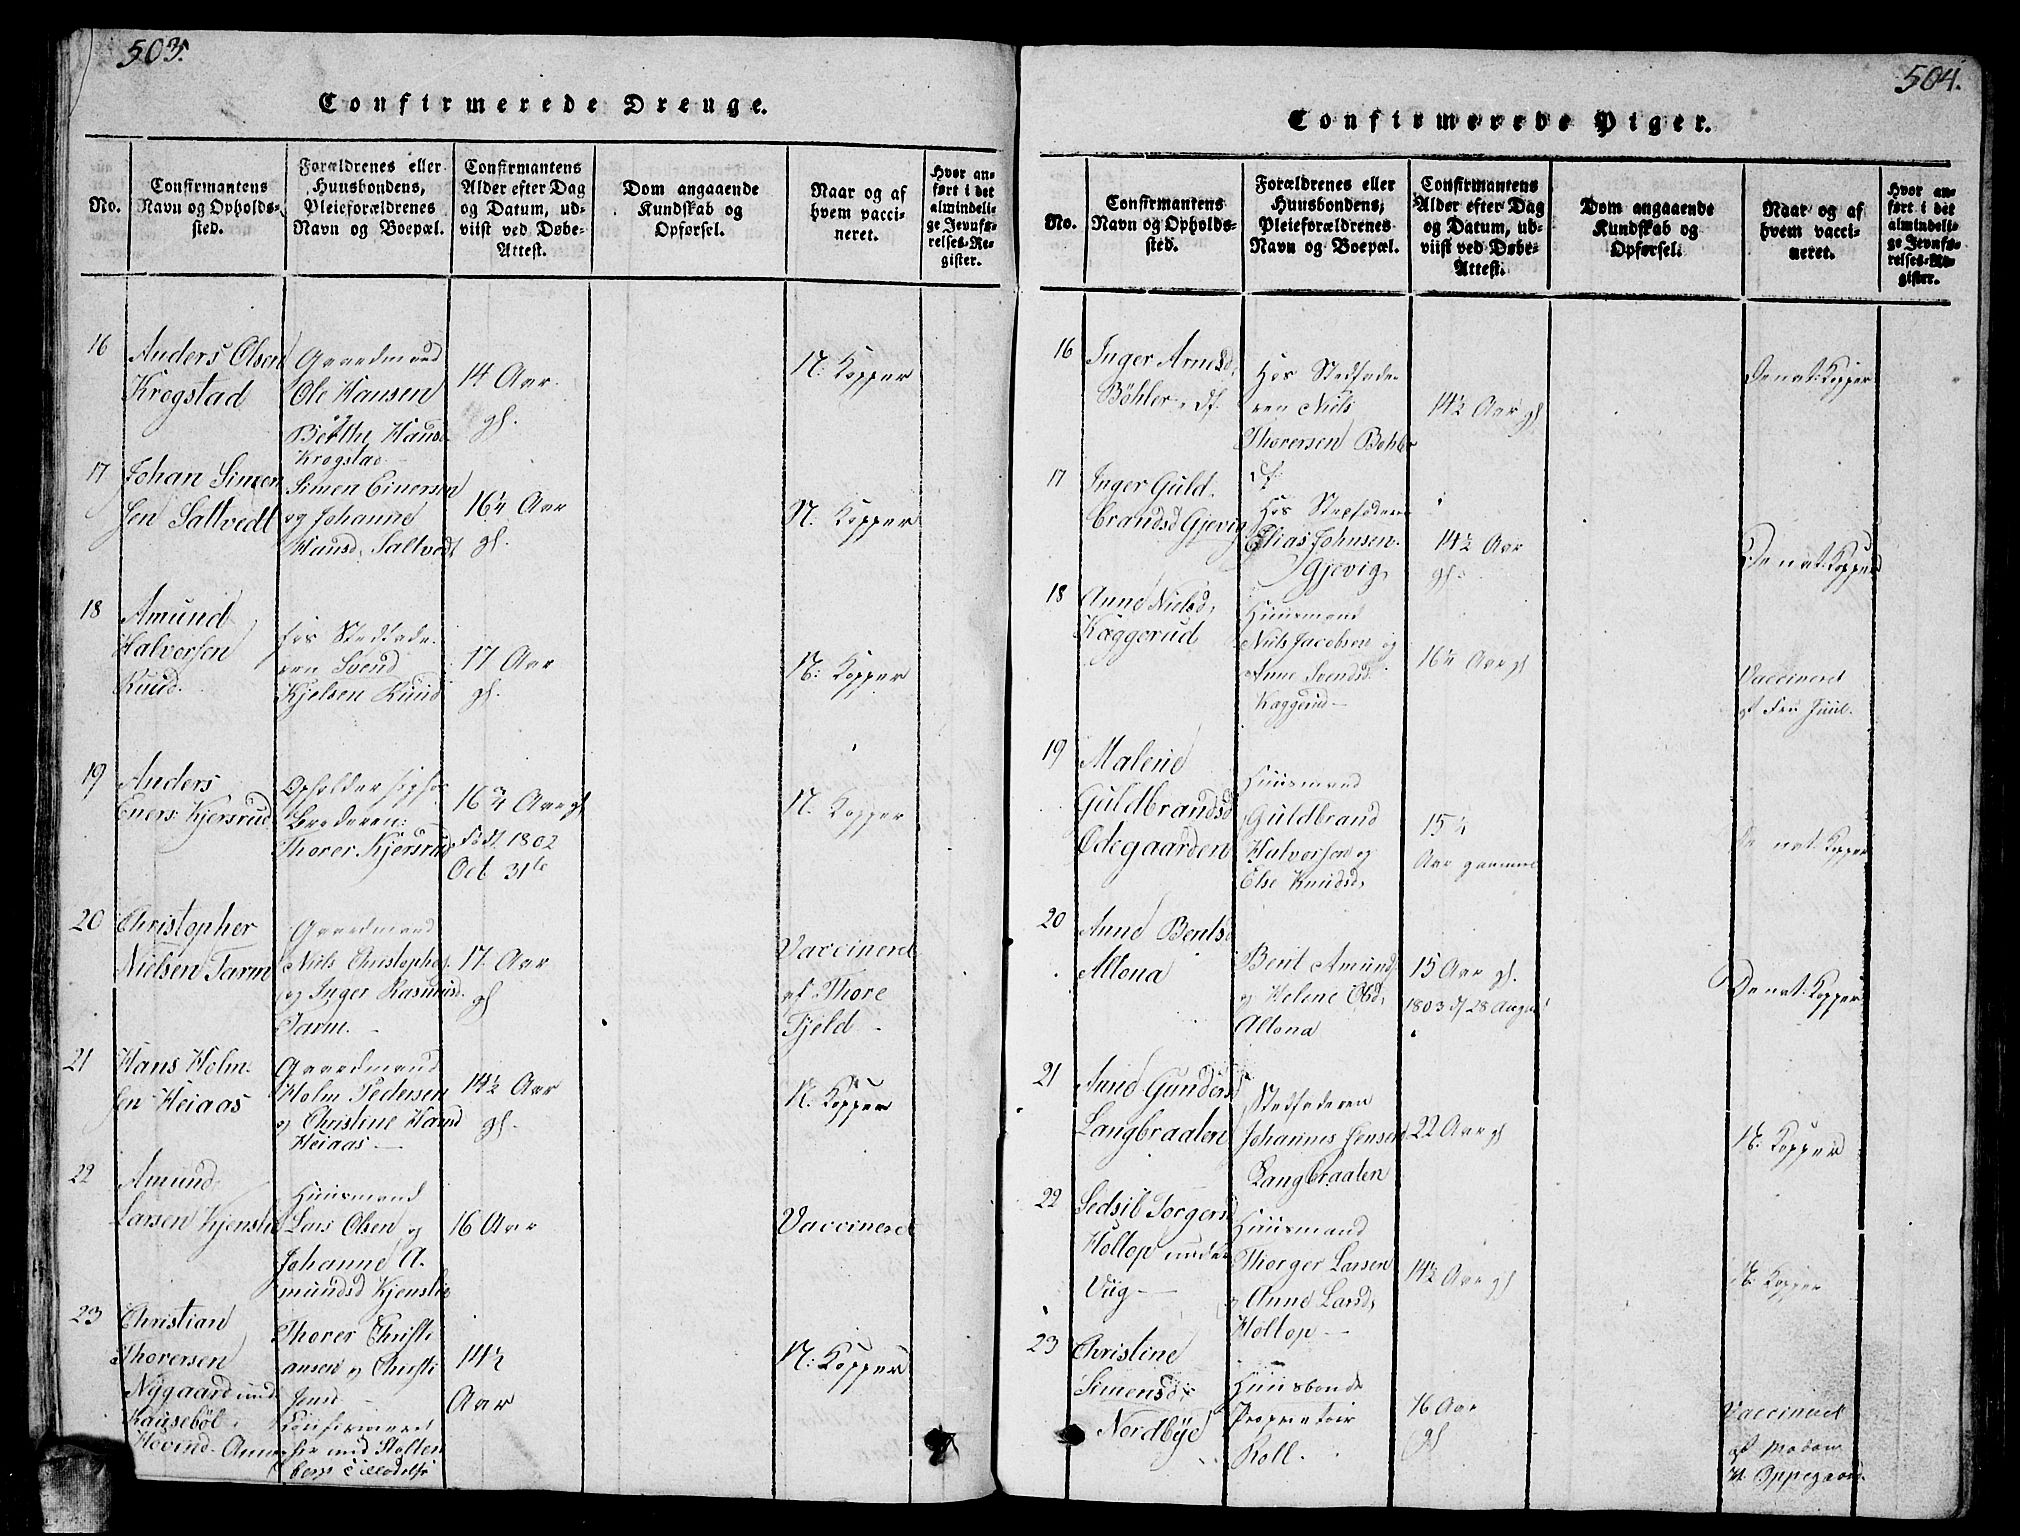 503.
Confirmerede Drenge.
No.
Confirmantens
Navn og Opholds-
sted.
Forældrenes eller
Huusbondens,
Pleieforældrenes
Navn og Boepæl.
Confirmantens
Alder efter Dag
og Datum, ud-
viist ved Døbe-
Attest.
Dom angaaende
Kundskab og
Opførsel.
Naar og af
hvem vacci-
neret.
Hvor an-
ført i det
almindeli-
ge Jevnfø-
relses-Re-
gister.
16
Anders Olsen
Krogstad
Gaardmand
Ole Hansen
og
Berthe Hansd
Krogstad
14 Aar
gl.
N: Kopper
17
Johan Simen
sen Saltvedt
Simen Einersen
og Johanne
Hansd. Saltvedt
16¼ Aar
gl.
N: Kopper
18
Amund
Halvorsen
Ruud
hos Stedfade-
ren Svend
Kjelsen Ruud
17 Aar
gl.
N: Kopper
19
Anders
Eners: Kjersrud
Opholder sig hos
Broderen:
Thorer Kjersrud
16¾ Aar gl
Født 1802
Oct 31te
N. Kopper
20
Christopher
Nielsen Tarm
Gaardmand
Niels Christophs
og Inger Rasmusd.
Tarm.
17 Aar
gl
Vaccineret
af Thore
Fjeld
21
Hans Holm-
sen Heiaas
Gaardmand
Holm Pedersen
og Christine Hansd
Heiaas
14½ Aar
gl.
N. Kopper
22
Amund
Larsen Kjenslie
Huusmand
Lars Olsen og
Johanne A-
mundsd Kjenslie
16 Aar
Vaccineret
23
Christian
Thorersen
Nygaard und
Hausebøl i
Hovind-Annex
Thorer Christi
ansen og Christi
Jensd
Confirmeret
her med Stolten
bergs Tilladelse
14½
Aar
N: Kopper
504.
Confirmerede Piger.
No.
Confirmantens
Navn og Opholds-
sted.
Forældrenes eller
Huusbondens,
Pleieforældrenes
Navn og Boepæl.
Confirmantens
Alder efter Dag
og Datum, ud-
viist ved Døbe-
Attest.
Dom angaaende
Kundskab og
Opførsel.
Naar og af
hvem vacci-
neret.
Hvor an-
ført i det
almindeli-
ge Jevnfø-
relses-Re-
gister.
16
Inger Arnesd,
Bøhler
Hos Stedfade-
ren Niels
Thorersen Bøhler
14½ Aar gl
De nat: Kopper
17
Inger Guld-
brandsd Gjevig
Hos Stedfaderen
Elias Johnsen
Gjevig,
14½ Aar
gl.
De nat: Kopper
18
Anne Nielsd,
Kaggerud
Huusmand
Niels Jacobsen og
Anne Svendsd
Kaggerud
16¼ Aar gl
Vaccineret
af Fru Juul.
19
Malene
Guldbrandsd
Ødegaarden
Huusmand
Guldbrand
Halvorsen og
Else Knudsd,
15¼
Aar gammel
De nat: Kopper
20
Anne Bentsd
Altona
Bent Amunds
og Helene Olsd,
Altona
15 Aar gl.
1803 d/ 28 August
De nat: Kopper
21
Anne Gundersd
Langbraaten
Stedfaderen
Johannes Jensen
Langbraaten
22 Aar gl
N: Kopper
22
Sedsil Torgersd
Holtop under
Viig
Huusmand
Thorger Larsen
og Anne Larsd,
Holtop
14½ Aar gl
N. Kopper
23
Christine
Simensd,
Nordbye
Huusbonde
Proprietair
Roll.
16 Aar
gl
Vaccineret
af Madam
Oppegaard.